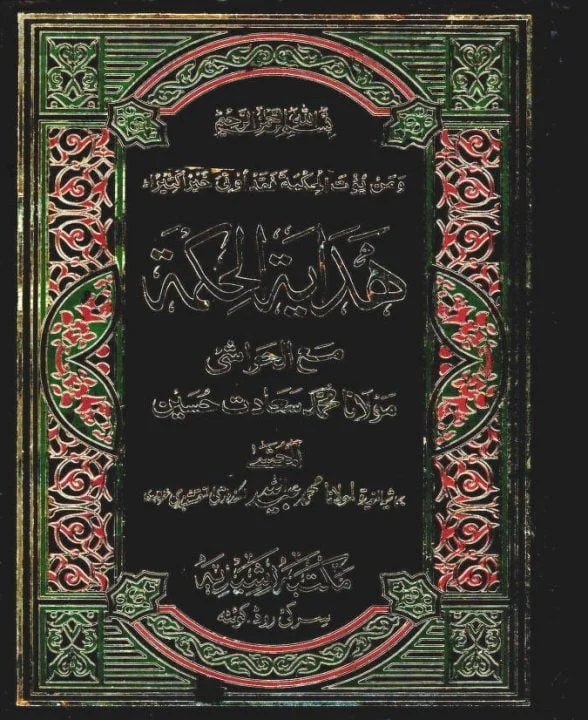 بسم الله الرحمن الرحيم
ومن يؤت الحكمة فقد أوتي خيرا كثيرا
هداية الحكمة
مع الحواشى
مولانا محمد سعادت حسين
المحشى
مولانا محمد عبيد
مكتبه رشيديه
سركى روڈ كوئٹه